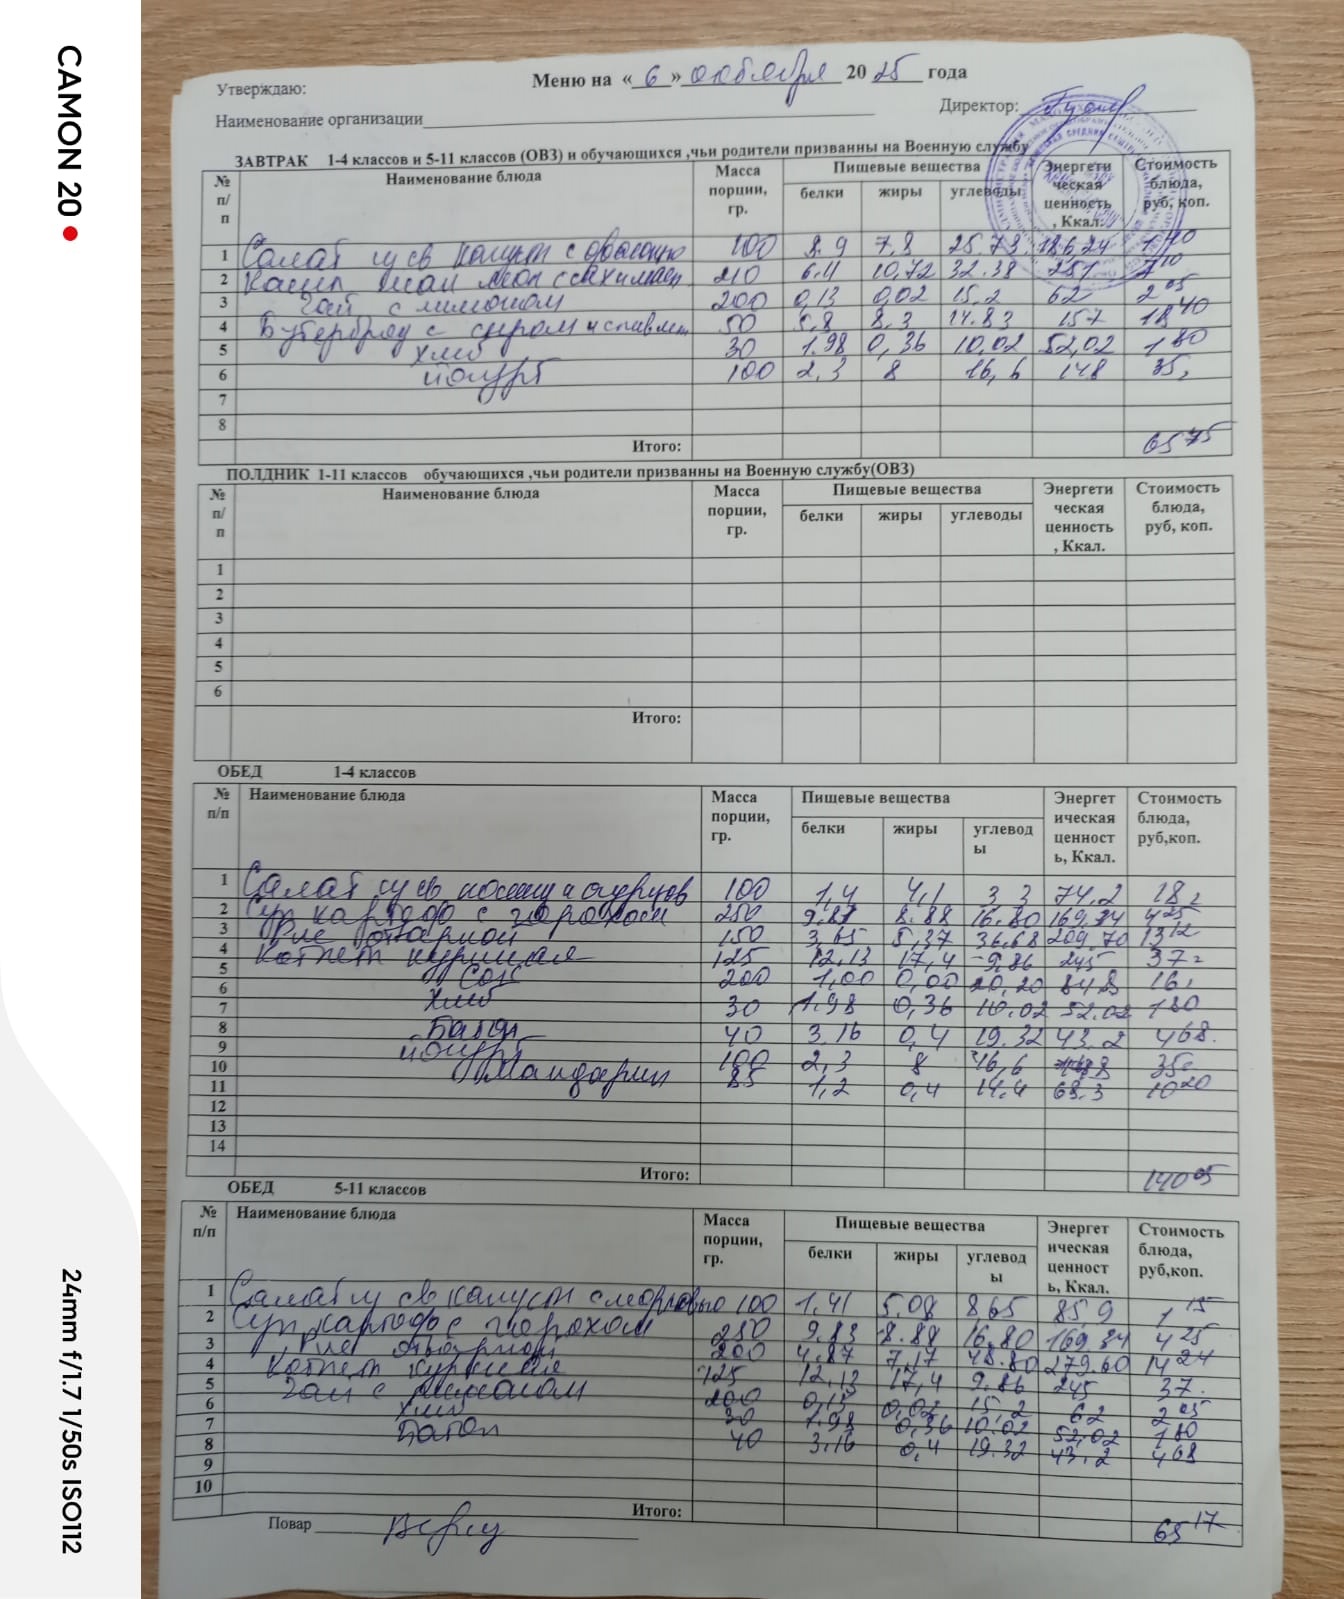 CAMON 20
24mm f/1.7 1/50s ISO112
Меню на «6» октября 20 25 года
Утверждаю:
Директор:
Наименование организации
ЗАВТРАК 1-4 классов и 5-11 классов (ОВЗ) и обучающихся ,чьи родители призванны на Военную службу
№ п/п Наименование блюда Масса порции, гр. Пищевые вещества белки жиры углеводы Энергетическая ценность, Ккал. Стоимость блюда, руб, коп.
1 Салат из св капуст с 100 8.9 7,8 25.73
2 Каша 210 10,72 32.38 251
3 Чай с лимоном 200 0,13 0,02 15,2 62 2 05
4 Бутерброд с сыром и сливоч 50 5,8 8,3 14.83 157 18 40
5 Хлеб 30 1.98 0,36 10,02 52,02 1 80
6 йогурт 100 2,3 8 16,6 148 35,
7
8
Итого: 65 75
ПОЛДНИК 1-11 классов обучающихся ,чьи родители призванны на Военную службу(ОВЗ)
№ п/п Наименование блюда Масса порции, гр. Пищевые вещества белки жиры углеводы Энергетическая ценность, Ккал. Стоимость блюда, руб, коп.
1
2
3
4
5
6
Итого:
ОБЕД 1-4 классов
№ п/п Наименование блюда Масса порции, гр. Пищевые вещества белки жиры углеводы Энергетическая ценность, Ккал. Стоимость блюда, руб,коп.
1 Салат из св помид и огурцов 100 1,4 4,1 3 3 74,2 18,
2 Суп картофо с горохом 250 8.88 16.80 169,84 4 25
3 Рис отварной 150 3,65 5,37 36.68 209,70 13 12
4 Котлет куриная 125 12,13 17,4 9,86 245 37
5 Сок 200 1,00 0,00 20,20 84.8 16,
6 Хлеб 30 1.98 0,36 10.02 52.02 1 80
7
8 Батон 40 3.16 0,4 19.32 43.2 4 68.
9 йогурт 100 2,3 8 16,6 35
10 Мандарин 85 1,2 0,4 14.4 68.3 10 20
11
12
13
14
Итого: 140 05
ОБЕД 5-11 классов
№ п/п Наименование блюда Масса порции, гр. Пищевые вещества белки жиры углеводы Энергетическая ценность, Ккал. Стоимость блюда, руб,коп.
1 Салат из св капуст с морковью 100 1,41 5.08 8 65 85,9 1 15
2 Суп картофо с горохом 250 9.83 8.88 16,80 169.84 4 25
3 Рис отварной 200 4.87 7,17 48.80 279.60 14 24
4 Котлет куриная 125 12,13 17,4 9.86 245 37.
5 Чай с лимоном 200 0,13 0,02 15,2 62 2 05
6 Хлеб 30 1.98 0,36 10.02 52,02 1 80
7 Батон 40 3.16 0,4 19.32 43.2 4 68
8
9
10
Итого: 65 17
Повар